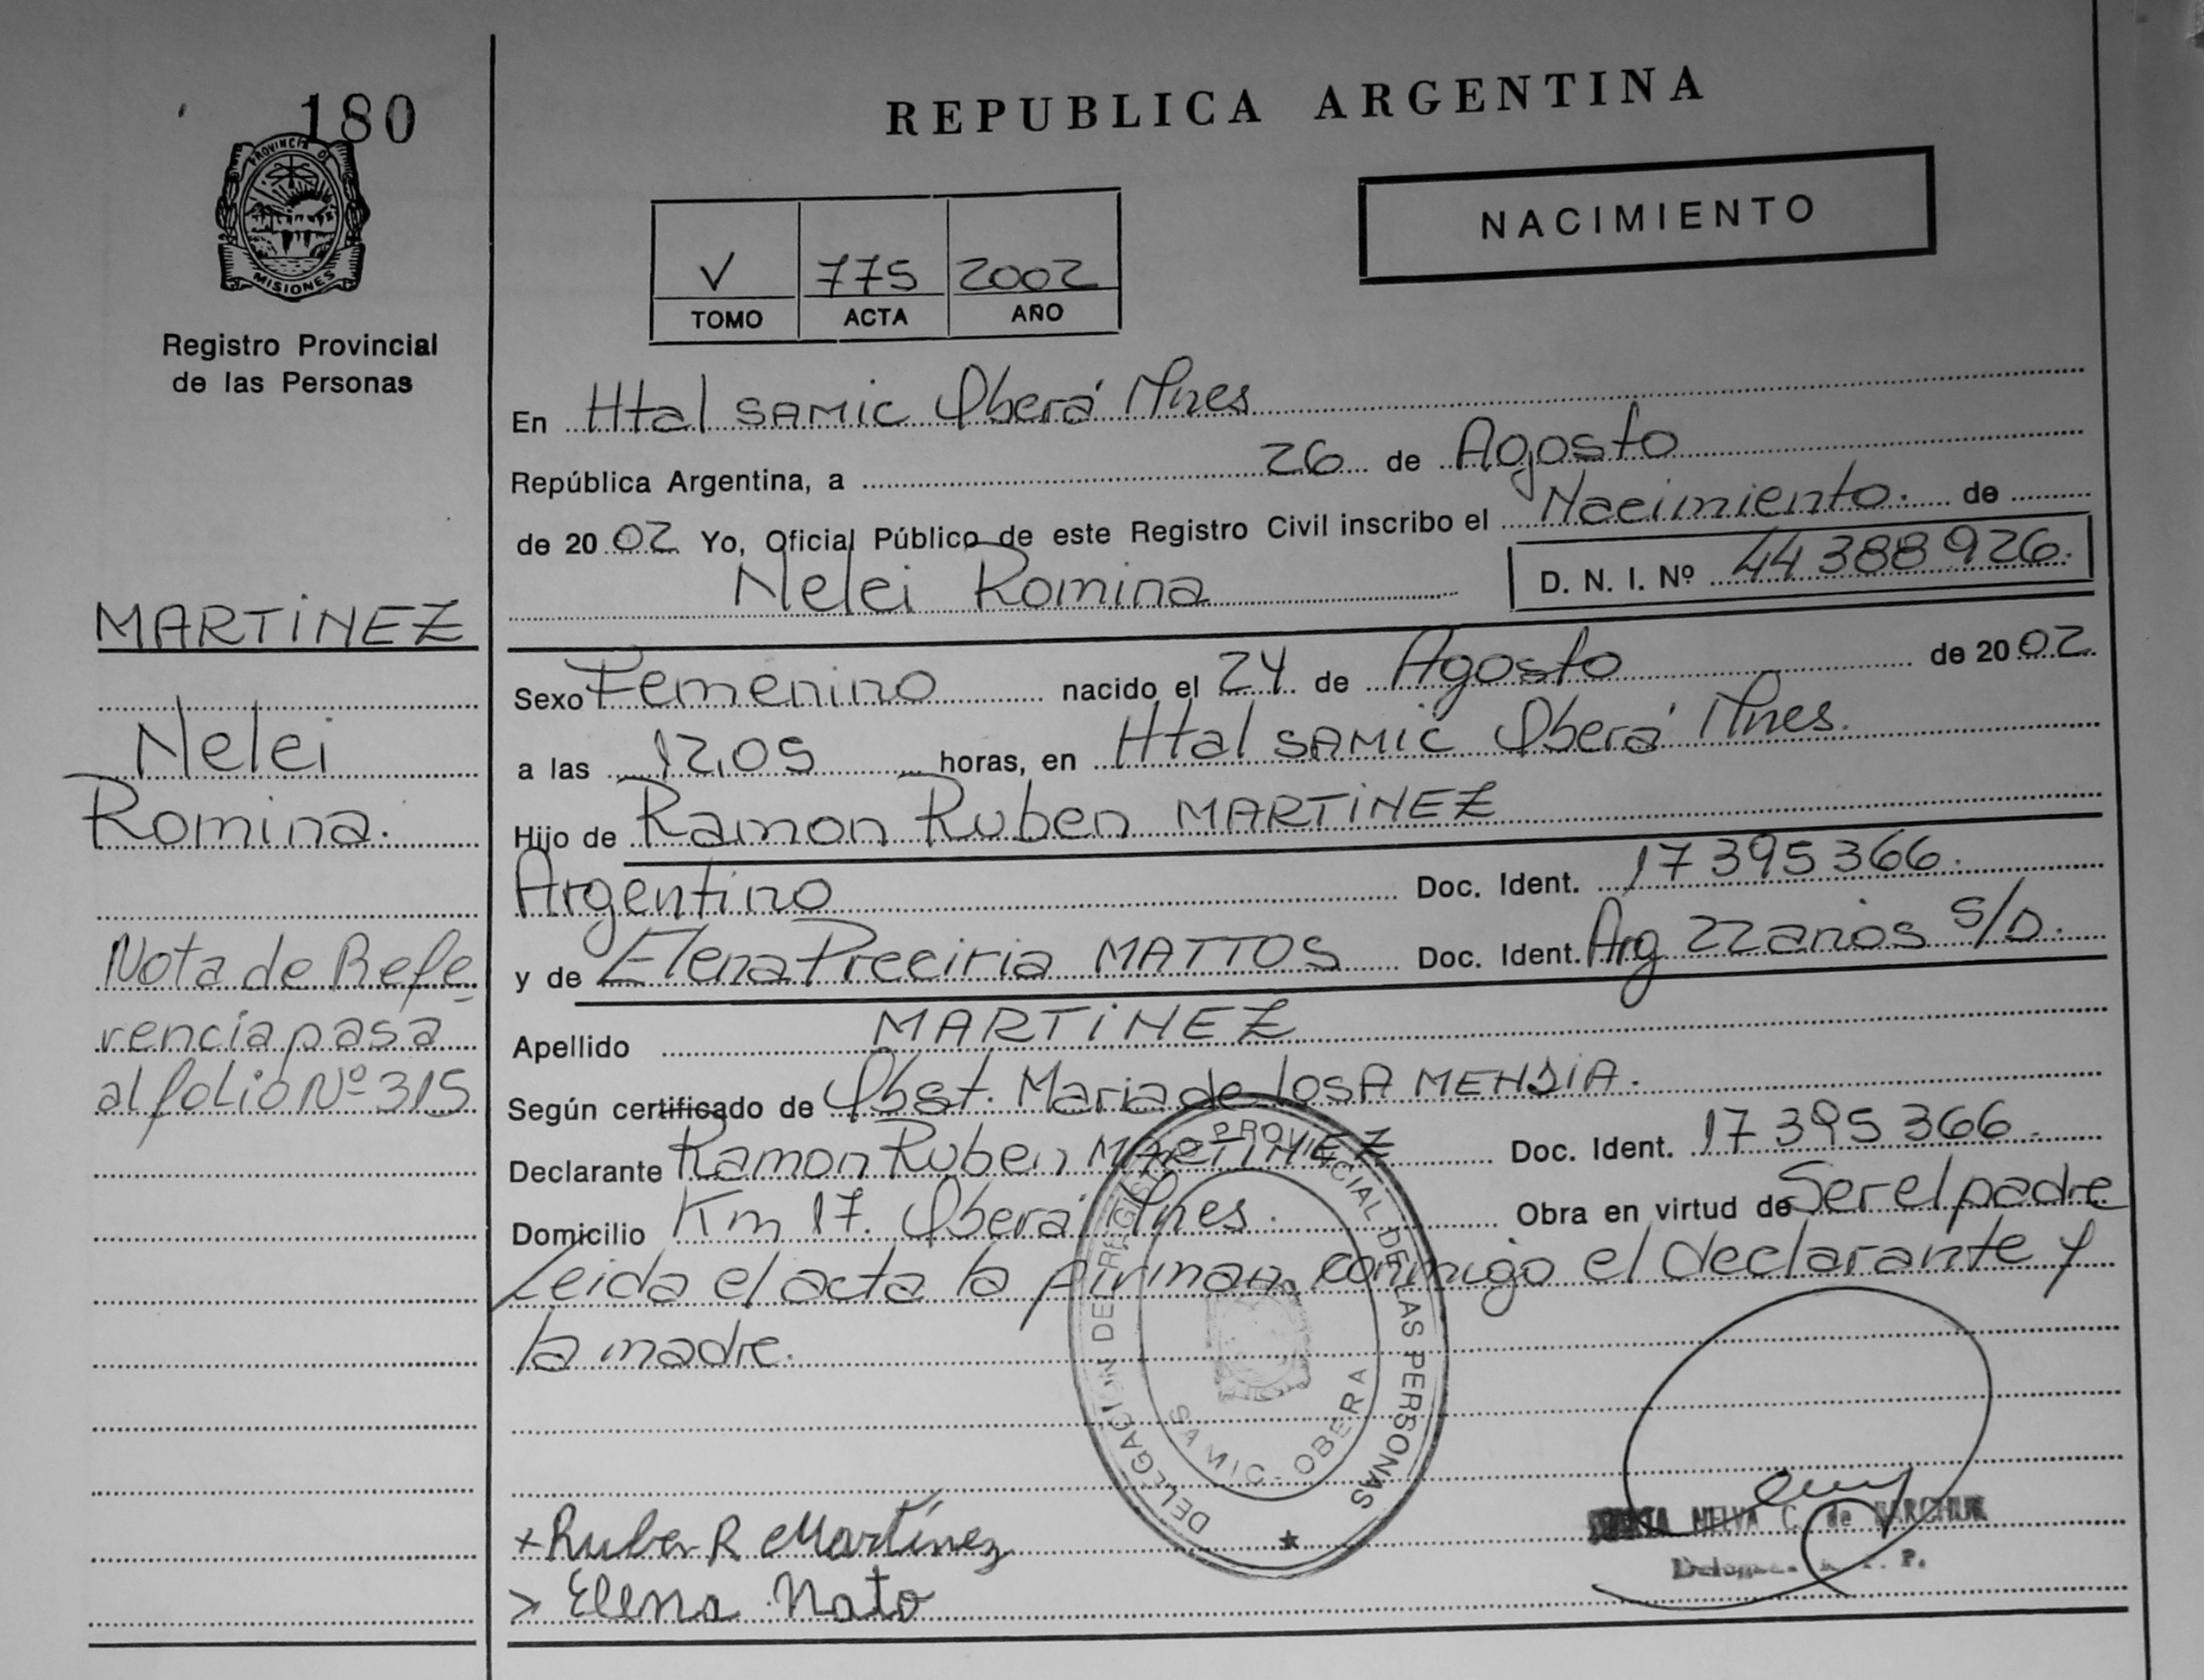 180
PROVINCIA DE
MISIONES
Registro Provincial
de las Personas
MARTINEZ
Nelei
Romina.
Nota de Refe-
rencia pasa
al folio Nº 315
REPUBLICA ARGENTINA
NACIMIENTO
V 775 2002
TOMO ACTA AÑO
En Htal SAMIC Oberá Mnes
República Argentina, a 26 de Agosto
de 2002 Yo, Oficial Público de este Registro Civil inscribo el Nacimiento. de
Nelei Romina D. N. I. Nº 44388926.
Sexo Femenino nacido el 24 de Agosto de 2002
a las 12,05 horas, en Htal SAMIC Oberá Mnes.
Hijo de Ramon Ruben MARTINEZ
Argentino Doc. Ident. 17395366.
y de Elena MATTOS Doc. Ident. Arg 22 anos S/D.
Apellido MARTINEZ
Según certificado de Obst. Maria de los A MENDIA.
Declarante Ramon Ruben MARTINEZ Doc. Ident. 17395366.
Domicilio Km 17. Oberá Mnes. Obra en virtud de Ser el padre
Leida el acta la firman conmigo el declarante y
la madre.
DELEGACION DE REGISTRO PROVINCIAL DE LAS PERSONAS
SAMIC - OBERA
+ Ruben R Martínez
> Elena Mato
NELVA C. de